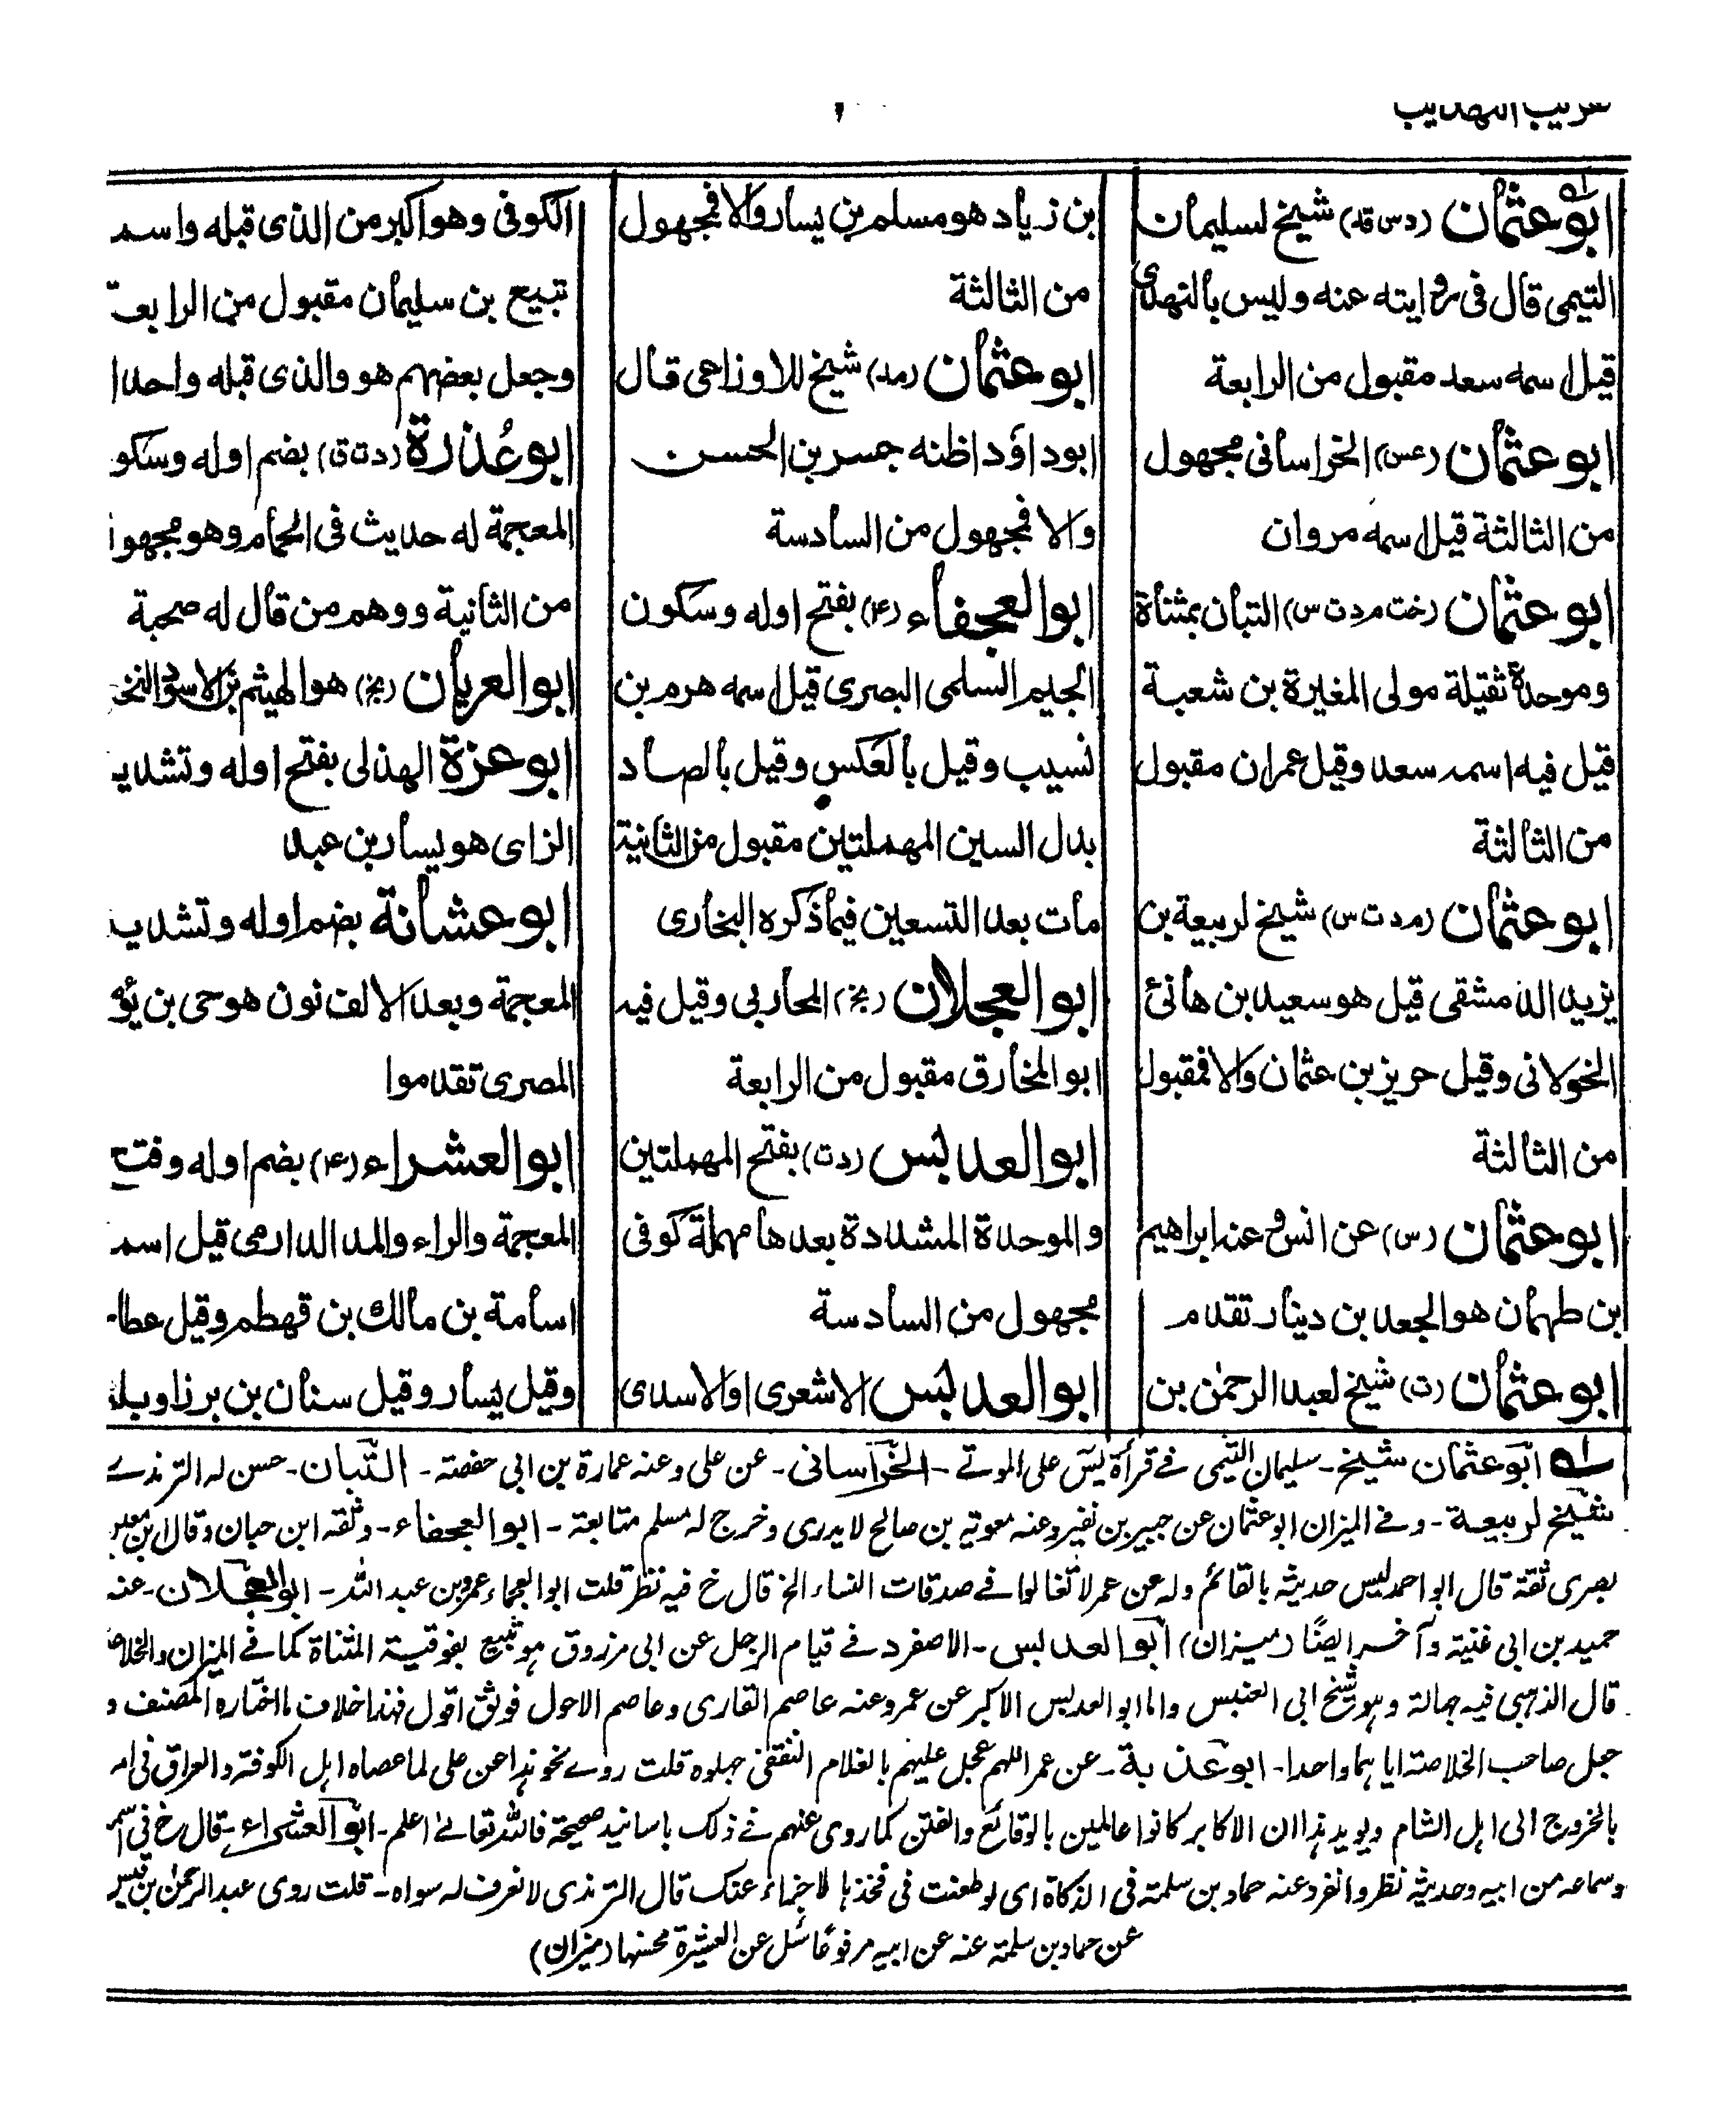 تقريب التهذيب
ابو عثمان (د س قه) شيخ لسليمان
التيمى قال فى روايته عنه وليس بالنهدى
قيل اسمه سعد مقبول من الرابعة
ابو عثمان (عس) الخراسانى مجهول
من الثالثة قيل اسمه مروان
ابو عثمان (خت م د ت س) التبان بمثناة
وموحدة ثقيلة مولى المغيرة بن شعبة
قيل فيه اسمه سعد وقيل عمران مقبول
من الثالثة
ابو عثمان (م د ت س) شيخ لربيعة بن
يزيد الدمشقى قيل هو سعيد بن هانئ
الخولانى وقيل حريز بن عثمان والا فمقبول
من الثالثة
ابو عثمان (س) عن انس وعنه ابراهيم
بن طهمان هو الجعد بن دينار تقدم
ابو عثمان (ت) شيخ لعبد الرحمٰن بن
بن زياد هو مسلم بن يسار والا فمجهول
من الثالثة
ابو عثمان (مد) شيخ للاوزاعى قال
ابو داؤد اظنه جسر بن الحسن
والا فمجهول من السادسة
ابو العجفاء (٤) بفتح اوله وسكون
الجيم السلمى البصرى قيل اسمه هرم بن
نسيب وقيل بالعكس وقيل بالصاد
بدل السين المهملتين مقبول من الثانية
مات بعد التسعين فيما ذكره البخارى
ابو العجلان (بخ) المحاربى وقيل فيه
ابو المخارق مقبول من الرابعة
ابو العدبس (د ت) بفتح المهملتين
والموحدة المشددة بعدها مهملة كوفى
مجهول من السادسة
ابو العدبس الاشعرى او الاسدى
الكوفى وهو اكبر من الذى قبله واسمه
تبيع بن سليمان مقبول من الرابعة
وجعل بعضهم هو والذى قبله واحدا
ابو عُذرة (د ت ق) بضم اوله وسكو
المعجمة له حديث فى الحمام وهو مجهو
من الثانية ووهم من قال له صحبة
ابو العريان (بخ) هو الهيثم بن الاسود النخ
ابو عزة الهذلى بفتح اوله وتشديد
الزاى هو يسار بن عبد
ابو عشانة بضم اوله وتشديد
المعجمة وبعد الالف نون هو حى بن يؤ
المصرى تقدموا
ابو العشراء (٤) بضم اوله وفتح
المعجمة والراء والمد الدارمى قيل اسمه
اسامة بن مالك بن قهطم وقيل عطا
وقيل يسار وقيل سنان بن برز او بلز
له ابو عثمان شيخ - سليمان التيمى فے قرأة يس على الموتے - الخراسانى - عن على وعنه عمارة بن ابى حفصة - التبان - حسن له الترمذے
شيخ لربيعة - وفے الميزان ابو عثمان عن جبير بن نفير وعنه معوية بن صالح لا يدرى وخرج له مسلم متابعة - ابو العجفاء - وثقه ابن حبان وقال ابن معين
بصرى ثقة قال ابو احمد ليس حديثه بالقائم وله عن عمر لا تغالوا فے صدقات النساء الخ قال خ فيه نظر قلت ابو العجماء عمرو بن عبد الله - ابو العجلان - عنه
حميد بن ابى غنية وآخر ايضًا (ميزان) ابو العدبس - الاصفر د فے قيام الرجل عن ابى مرزوق هو تبيع بفوقية المثناة كما فے الميزان والخلاصة
قال الذهبى فيه جهالة وهو شيخ ابى العنبس واما ابو العدبس الاكبر عن عمر وعنه عاصم القارى وعاصم الاحول فوثق اقول فهذا خلاف ما اختاره المصنف و
جعل صاحب الخلاصة اياهما واحدا - ابو عذبة - عن عمر اللهم عجل عليهم بالغلام الثقفى جهلوه قلت روے نحو هذا عن على لما عصاه اهل الكوفة والعراق فى امره
بالخروج الى اهل الشام ويويد هذا ان الاكابر كانوا عالمين بالوقائع والفتن كما روى عنهم فے ذلك باسانيد صحيحة فالله تعالے اعلم - ابو العشراء - قال خ فى اسمه
وسماعه من ابيه وحديثه نظر وانفرد عنه حماد بن سلمة فى الذكاة اى لو طعنت فى فخذها لاجزاء عنك قال الترمذى لا نعرف له سواه - قلت روى عبد الرحمٰن بن قيس
عن حماد بن سلمة عنه عن ابيه مرفوعًا سئل عن العتيرة محسنها (ميزان)